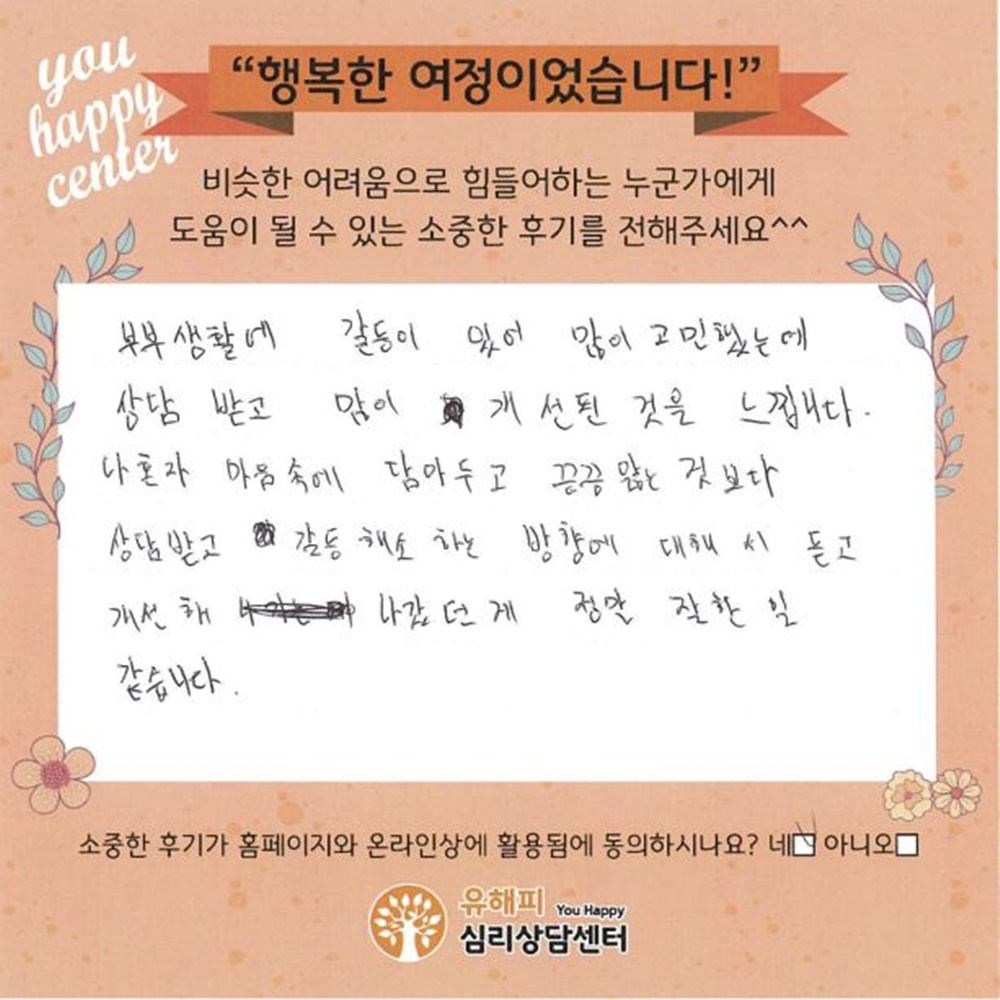 you
happy
center
“행복한 여정이었습니다!”
비슷한 어려움으로 힘들어하는 누군가에게
도움이 될 수 있는 소중한 후기를 전해주세요^^
부부생활에 갈등이 있어 많이 고민했는데
상담 받고 많이 개선된 것을 느낍니다.
나혼자 마음속에 담아두고 끙끙 앓는 것보다
상담받고 갈등 해소 하는 방향에 대해 시 듣고
개선해 나갔던게 정말 잘한 일
같습니다.
소중한 후기가 홈페이지와 온라인상에 활용됨에 동의하시나요? 네 아니오
유해피 You Happy
심리상담센터